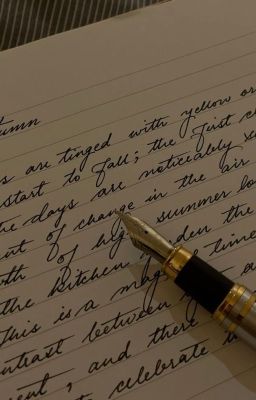 umn
s are tinged with yellow or
start to fall; the first c
he days are noticeably s
nt of change in the air
th of hig summer lo
the kitchen den the
This is a mag time
ontrast between
ent, and there
celebrate t